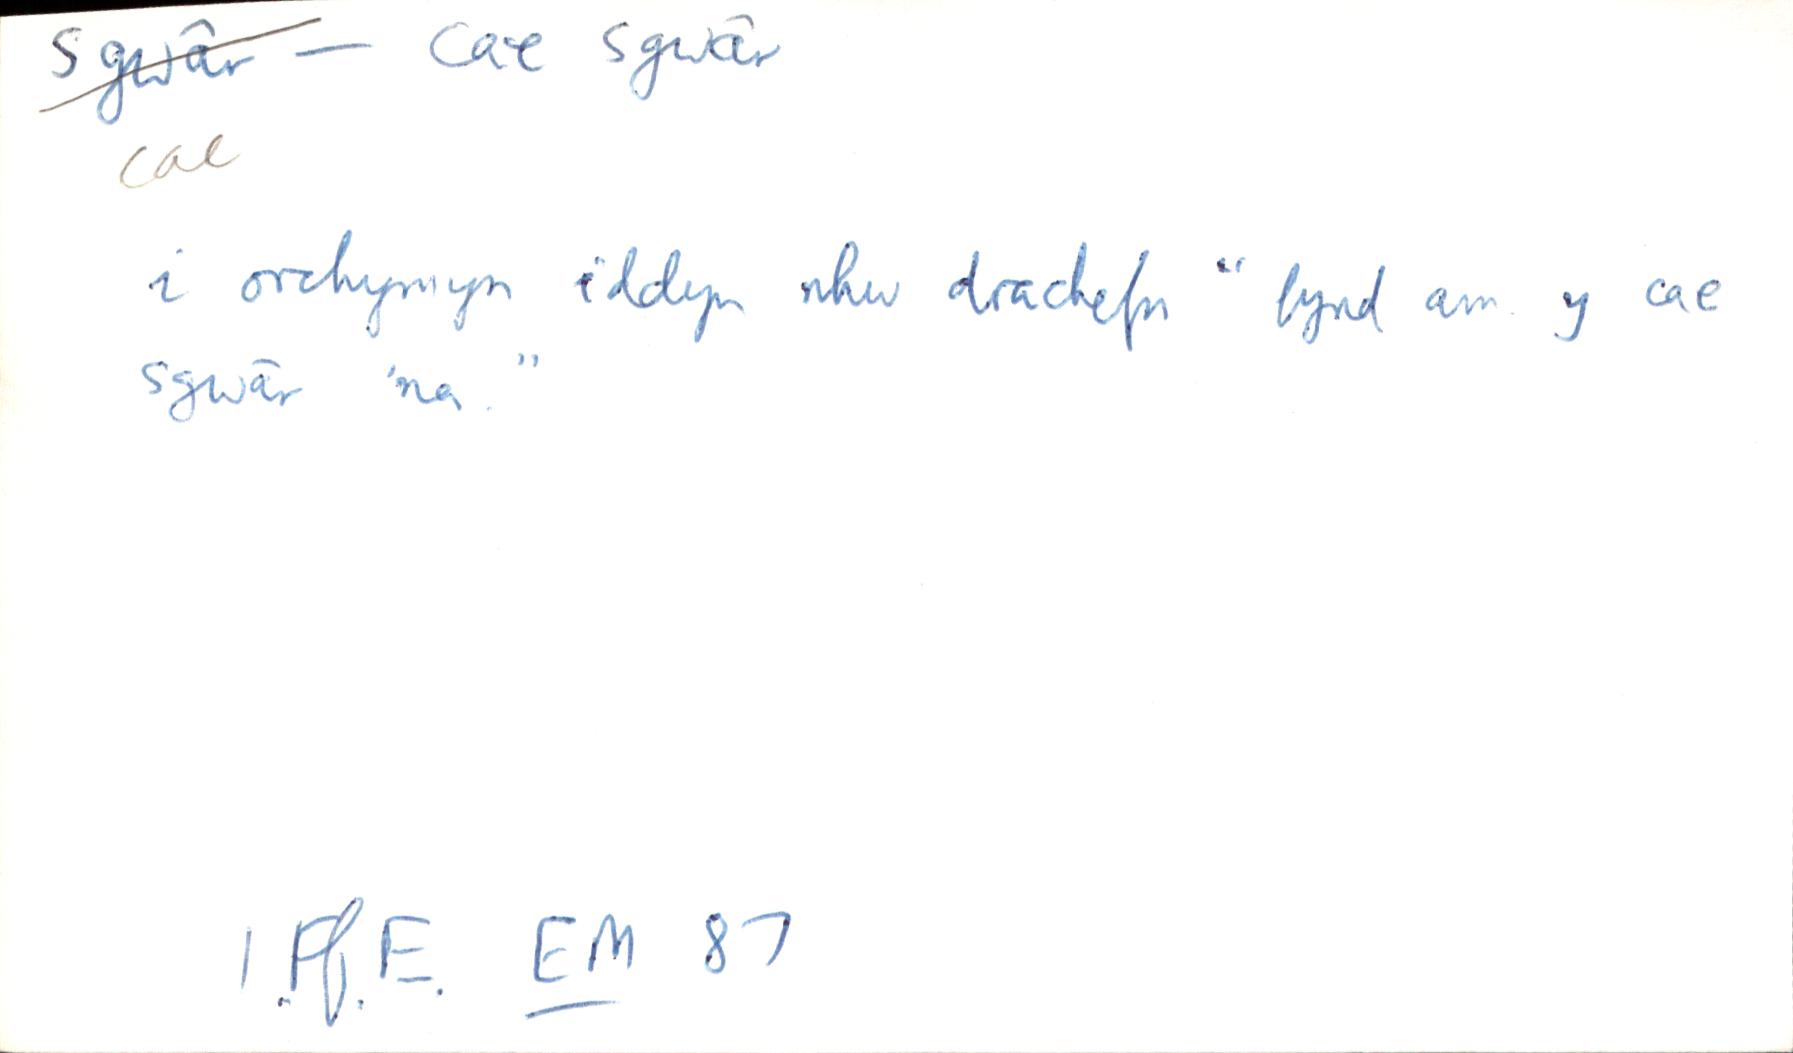 sgwâr — cae sgwâr
cae
i orchymyn iddyn nhw drachefn "fynd am y cae
sgwâr 'na."
I.Ff.E. EM 87